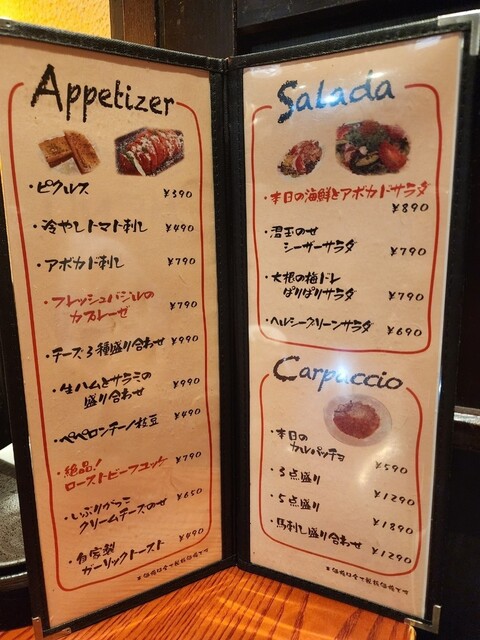 Appetizer
・ピクルス ¥390
・冷やしトマト刺し ¥490
・アボカド刺し ¥790
・フレッシュバジルの
カプレーゼ ¥790
・チーズ3種盛り合わせ ¥990
・生ハムとサラミの
盛り合わせ ¥990
・ペペロンチーノ枝豆 ¥490
・絶品!
ローストビーフユッケ ¥790
・いぶりがっこ
クリームチーズのせ ¥650
・自家製
ガーリックトースト ¥490
Salada
・本日の海鮮とアボカドサラダ
¥890
・温玉のせ
シーザーサラダ ¥790
・大根の梅ドレ
ぱりぱりサラダ ¥790
・ヘルシーグリーンサラダ ¥690
Carpaccio
・本日の
カルパッチョ ¥590
・3点盛り ¥1290
・5点盛り ¥1890
・馬刺し盛り合わせ ¥1290